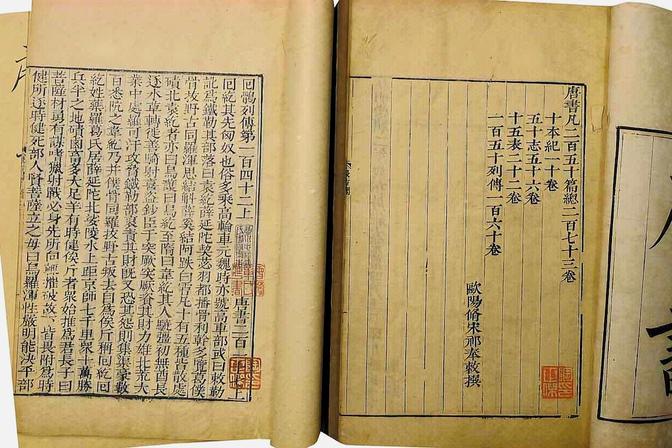 唐書凡二百五十篇總二百七十三卷
十本紀一十卷
五十志五十六卷
十五表二十二卷
一百五十列傳一百六十卷
歐陽脩宋祁奉敕撰
回鶻列傳第一百四十二上 唐書二百一 上
回紇其先匈奴也俗多乘高輪車元魏時亦號高車部或曰敕勒
訛為鐵勒其部落曰袁紇薛延陀契苾羽都播骨利幹多覽葛僕
骨拔野古同羅渾思結斛薛奚結阿跌白霫凡十有五種皆散處
磧北袁紇者亦曰烏護曰烏紇至隋曰韋紇其人驍彊初無酋長
逐水草轉徙善騎射喜盜鈔臣于突厥突厥資其財力雄北荒大
業中處羅可汗攻脅鐵勒部裒責其財既又恐其怨則集渠豪數
百悉阬之韋紇乃并僕骨同羅拔野古叛去自為俟斤稱回紇回
紇姓藥羅葛氏居薛延陀北娑陵水上距京師七千里衆十萬勝
兵半之地磧鹵畜多大足羊有時健俟斤者衆始推為君長子曰
菩薩材勇有謀嗜獵射戰必身先所向輒摧破故下皆畏附為時
健所逐時健死部人賢菩薩立之毋曰烏羅渾性嚴明能決平部